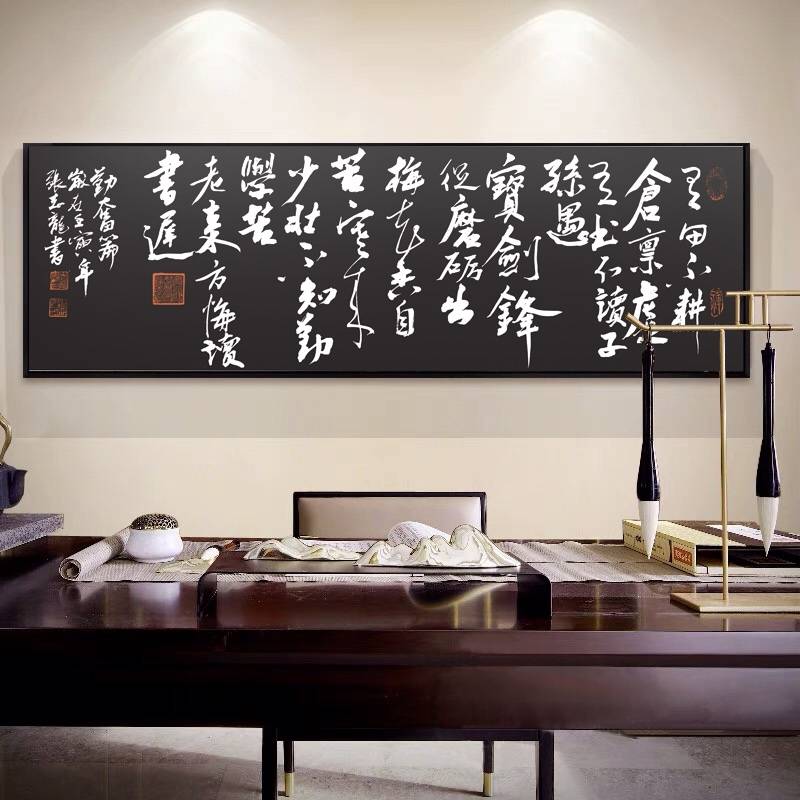 有田不耕
倉禀虚
有书不讀子
孫愚
寶劍鋒
從磨砺出
梅花香自
苦寒来
少壮不知勤
學苦
老来方悔讀
書遲
勤奮篇
歲在壬寅年
張志龍書